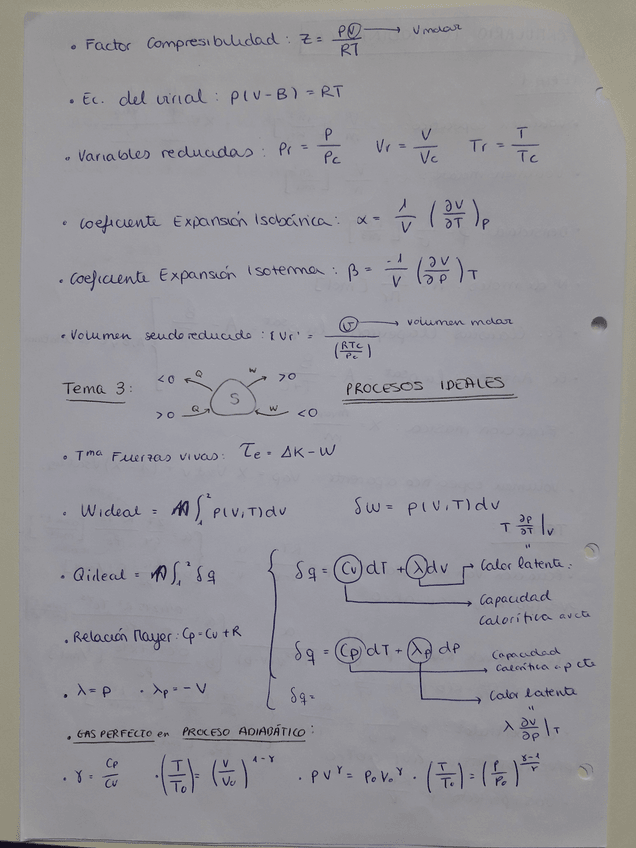 • Factor Compresibilidad : Z = PV/RT → V molar
• Ec. del virial : P(V-B) = RT
• Variables reducidas : Pr = P/Pc Vr = V/Vc Tr = T/Tc
• Coeficiente Expansión Isobárica : α = 1/V (∂V/∂T)P
• Coeficiente Expansión Isoterma : β = -1/V (∂V/∂P)T
• Volumen seudoreducido : Vr' = V/(RTc/Pc) → volumen molar
Tema 3 : <0 Q W >0 S >0 Q W <0 PROCESOS IDEALES
• Tma Fuerzas vivas : τe = ΔK - W
• Wideal = ∫₁² P(V,T)dv δW = P(V,T)dv
T ∂p/∂T|V
"
• Qideal = ∫₁² δq δq = Cv dT + λdv → Calor latente.
→ Capacidad calorítica a v cte
• Relación Mayer : Cp = Cv + R δq = Cp dT + λp dp
→ Capacidad calorítica a p cte
• λ = P • λp = -V δq = → Calor latente
"
λ ∂V/∂p|T
• GAS PERFECTO en PROCESO ADIABÁTICO :
• γ = Cp/Cv • (T/To) = (V/Vo)^1-γ • PV^γ = PoVo^γ • (T/To) = (P/Po)^γ-1/γ